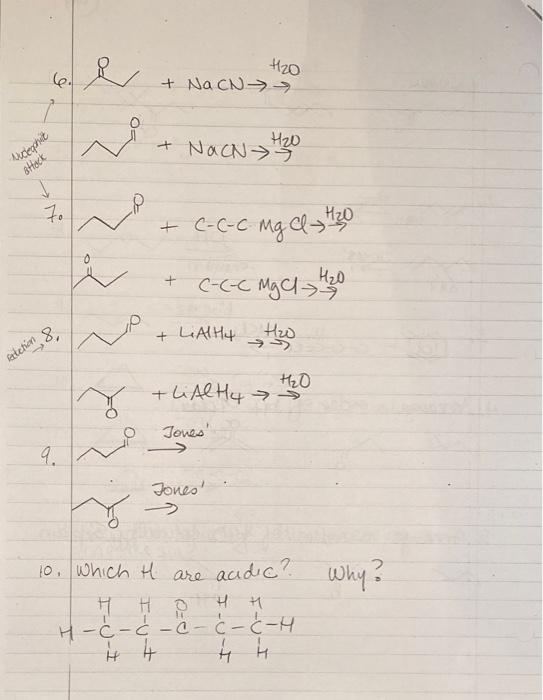 6. O + NaCN → H2O →
O + NaCN → H2O →
Nucleophilic attack
7. O + C-C-C MgCl → H2O →
O + C-C-C MgCl → H2O →
reduction → 8. O + LiAlH4 → H2O →
O + LiAlH4 → H2O →
9. O Jones' →
O Jones' →
10. Which H are acidic? Why?
H H O H H
H-C-C-C-C-C-H
H H H H